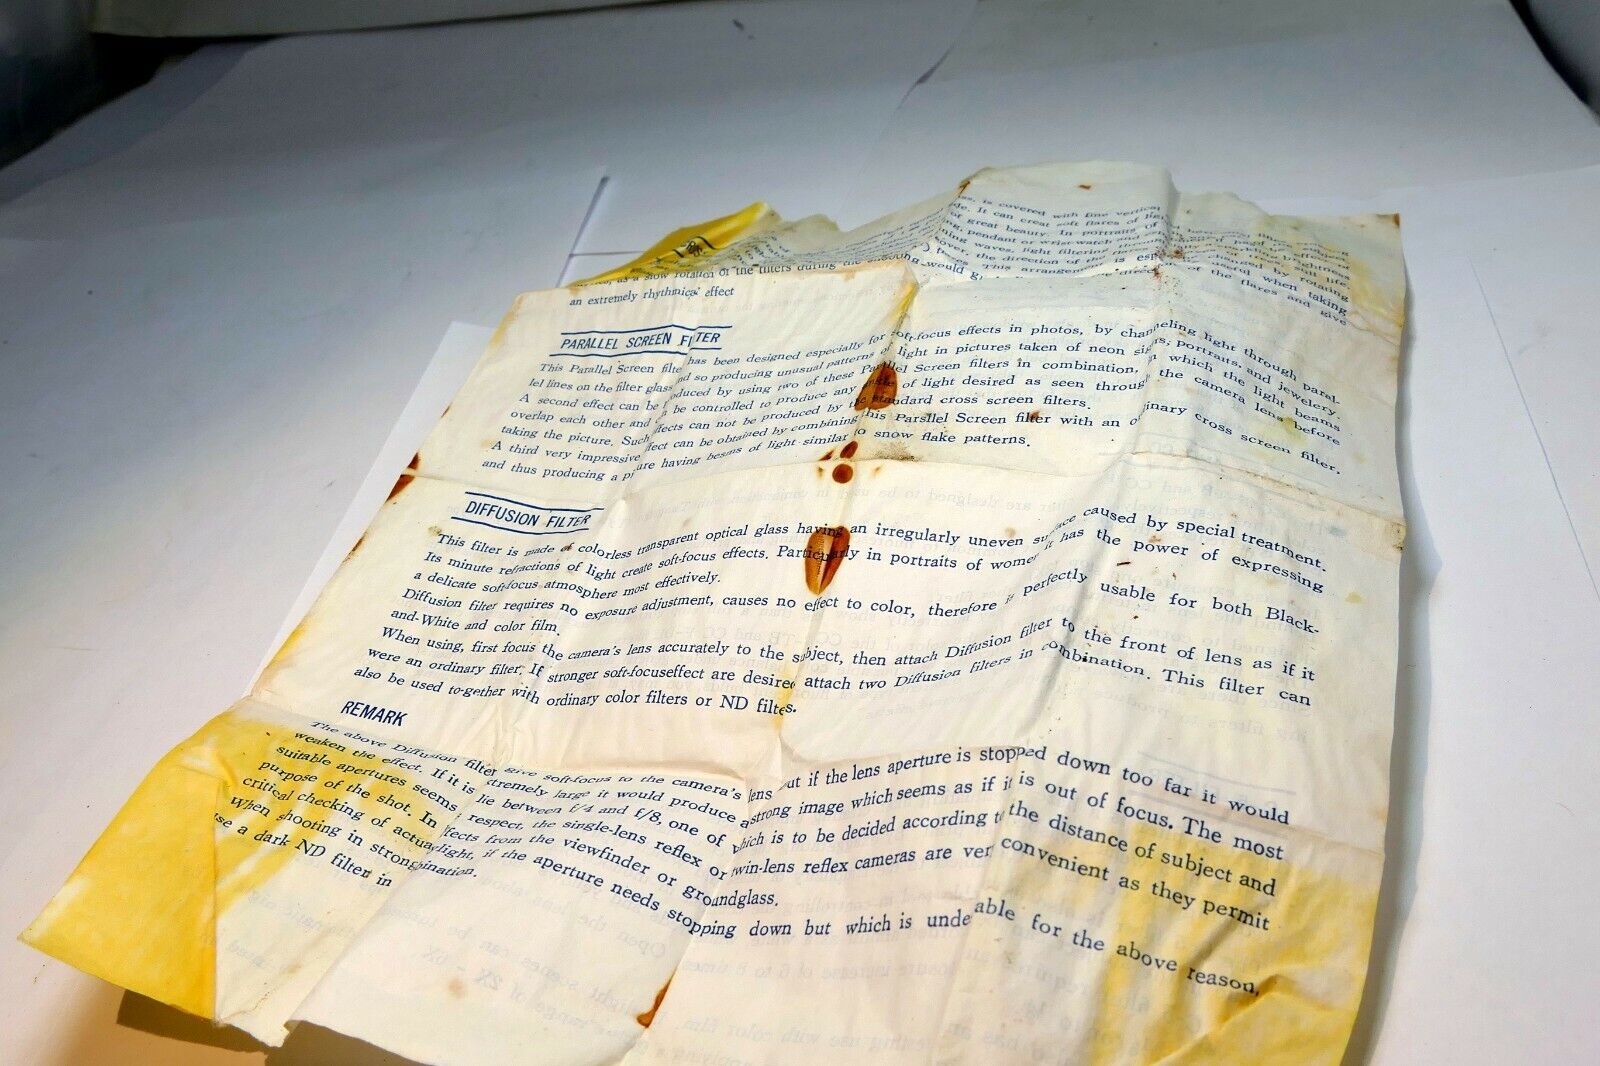 ss, is covered with fine vertical
de. It can creat soft flares of
or great beauty. In portraits of
ng, pendant or wrist-watch and
ning waves, light filtering
over, the direction of the
This arrangement is useful when taking
as a slow rotation of the filters during the would direction of the flares and give
an extremely rhythmical effect
PARALLEL SCREEN FILTER
This Parallel Screen filte has been designed especially for soft-focus effects in photos, by channeling light through paral-
lel lines on the filter glass nd so producing unusual patterns of light in pictures taken of neon signs, portraits, and jewelery.
A second effect can be oduced by using two of these Parallel Screen filters in combination, in which the light beams
overlap each other and can be controlled to produce any of light desired as seen through the camera lens before
taking the picture. Such effects can not be produced by the standard cross screen filters.
A third very impressive effect can be obtained by combining this Parsllel Screen filter with an ordinary cross screen filter,
and thus producing a picture having besms of light similar to snow flake patterns.
DIFFUSION FILTER
This filter is made of colorless transparent optical glass having an irregularly uneven surface caused by special treatment.
Its minute refractions of light create soft-focus effects. Particularly in portraits of women it has the power of expressing
a delicate soft-focus atmosphere most effectively.
Diffusion filter requires no exposure adjustment, causes no effect to color, therefore is perfectly usable for both Black-
and-White and color film.
When using, first focus the camera's lens accurately to the subject, then attach Diffusion filter to the front of lens as if it
were an ordinary filter. If stronger soft-focuseffect are desired attach two Diffusion filters in combination. This filter can
also be used to-gether with ordinary color filters or ND filters.
REMARK
The above Diffusion filter give soft-focus to the camera's lens but if the lens aperture is stopped down too far it would
weaken the effect. If it is extremely large it would produce a strong image which seems as if it is out of focus. The most
suitable apertures seems lie between f/4 and f/8, one of which is to be decided according to the distance of subject and
purpose of the shot. In respect, the single-lens reflex or twin-lens reflex cameras are very convenient as they permit
critical checking of actual effects from the viewfinder or groundglass.
When shooting in strong light, if the aperture needs stopping down but which is undesirable for the above reason,
use a dark ND filter in combination.